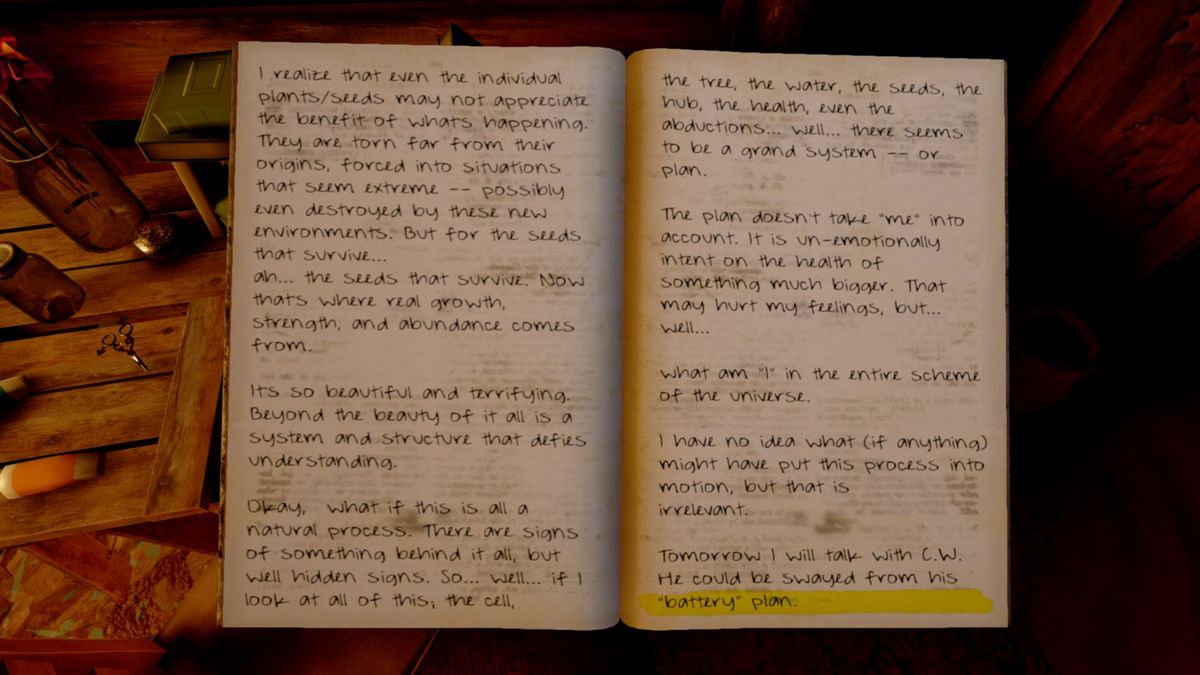 I realize that even the individual
plants/seeds may not appreciate
the benefit of whats happening.
They are torn far from their
origins, forced into situations
that seem extreme -- possibly
even destroyed by these new
environments. But for the seeds
that survive...
ah... the seeds that survive. Now
thats where real growth,
strength, and abundance comes
from.
Its so beautiful and terrifying.
Beyond the beauty of it all is a
system and structure that defies
understanding.
Okay, what if this is all a
natural process. There are signs
of something behind it all, but
well hidden signs. So... well... if I
look at all of this; the cell,
the tree, the water, the seeds, the
hub, the health, even the
abductions... well... there seems
to be a grand system -- or
plan.
The plan doesn't take "me" into
account. It is un-emotionally
intent on the health of
something much bigger. That
may hurt my feelings, but...
well...
what am "I" in the entire scheme
of the universe.
I have no idea what (if anything)
might have put this process into
motion, but that is
irrelevant.
Tomorrow I will talk with C.W.
He could be swayed from his
"battery" plan.